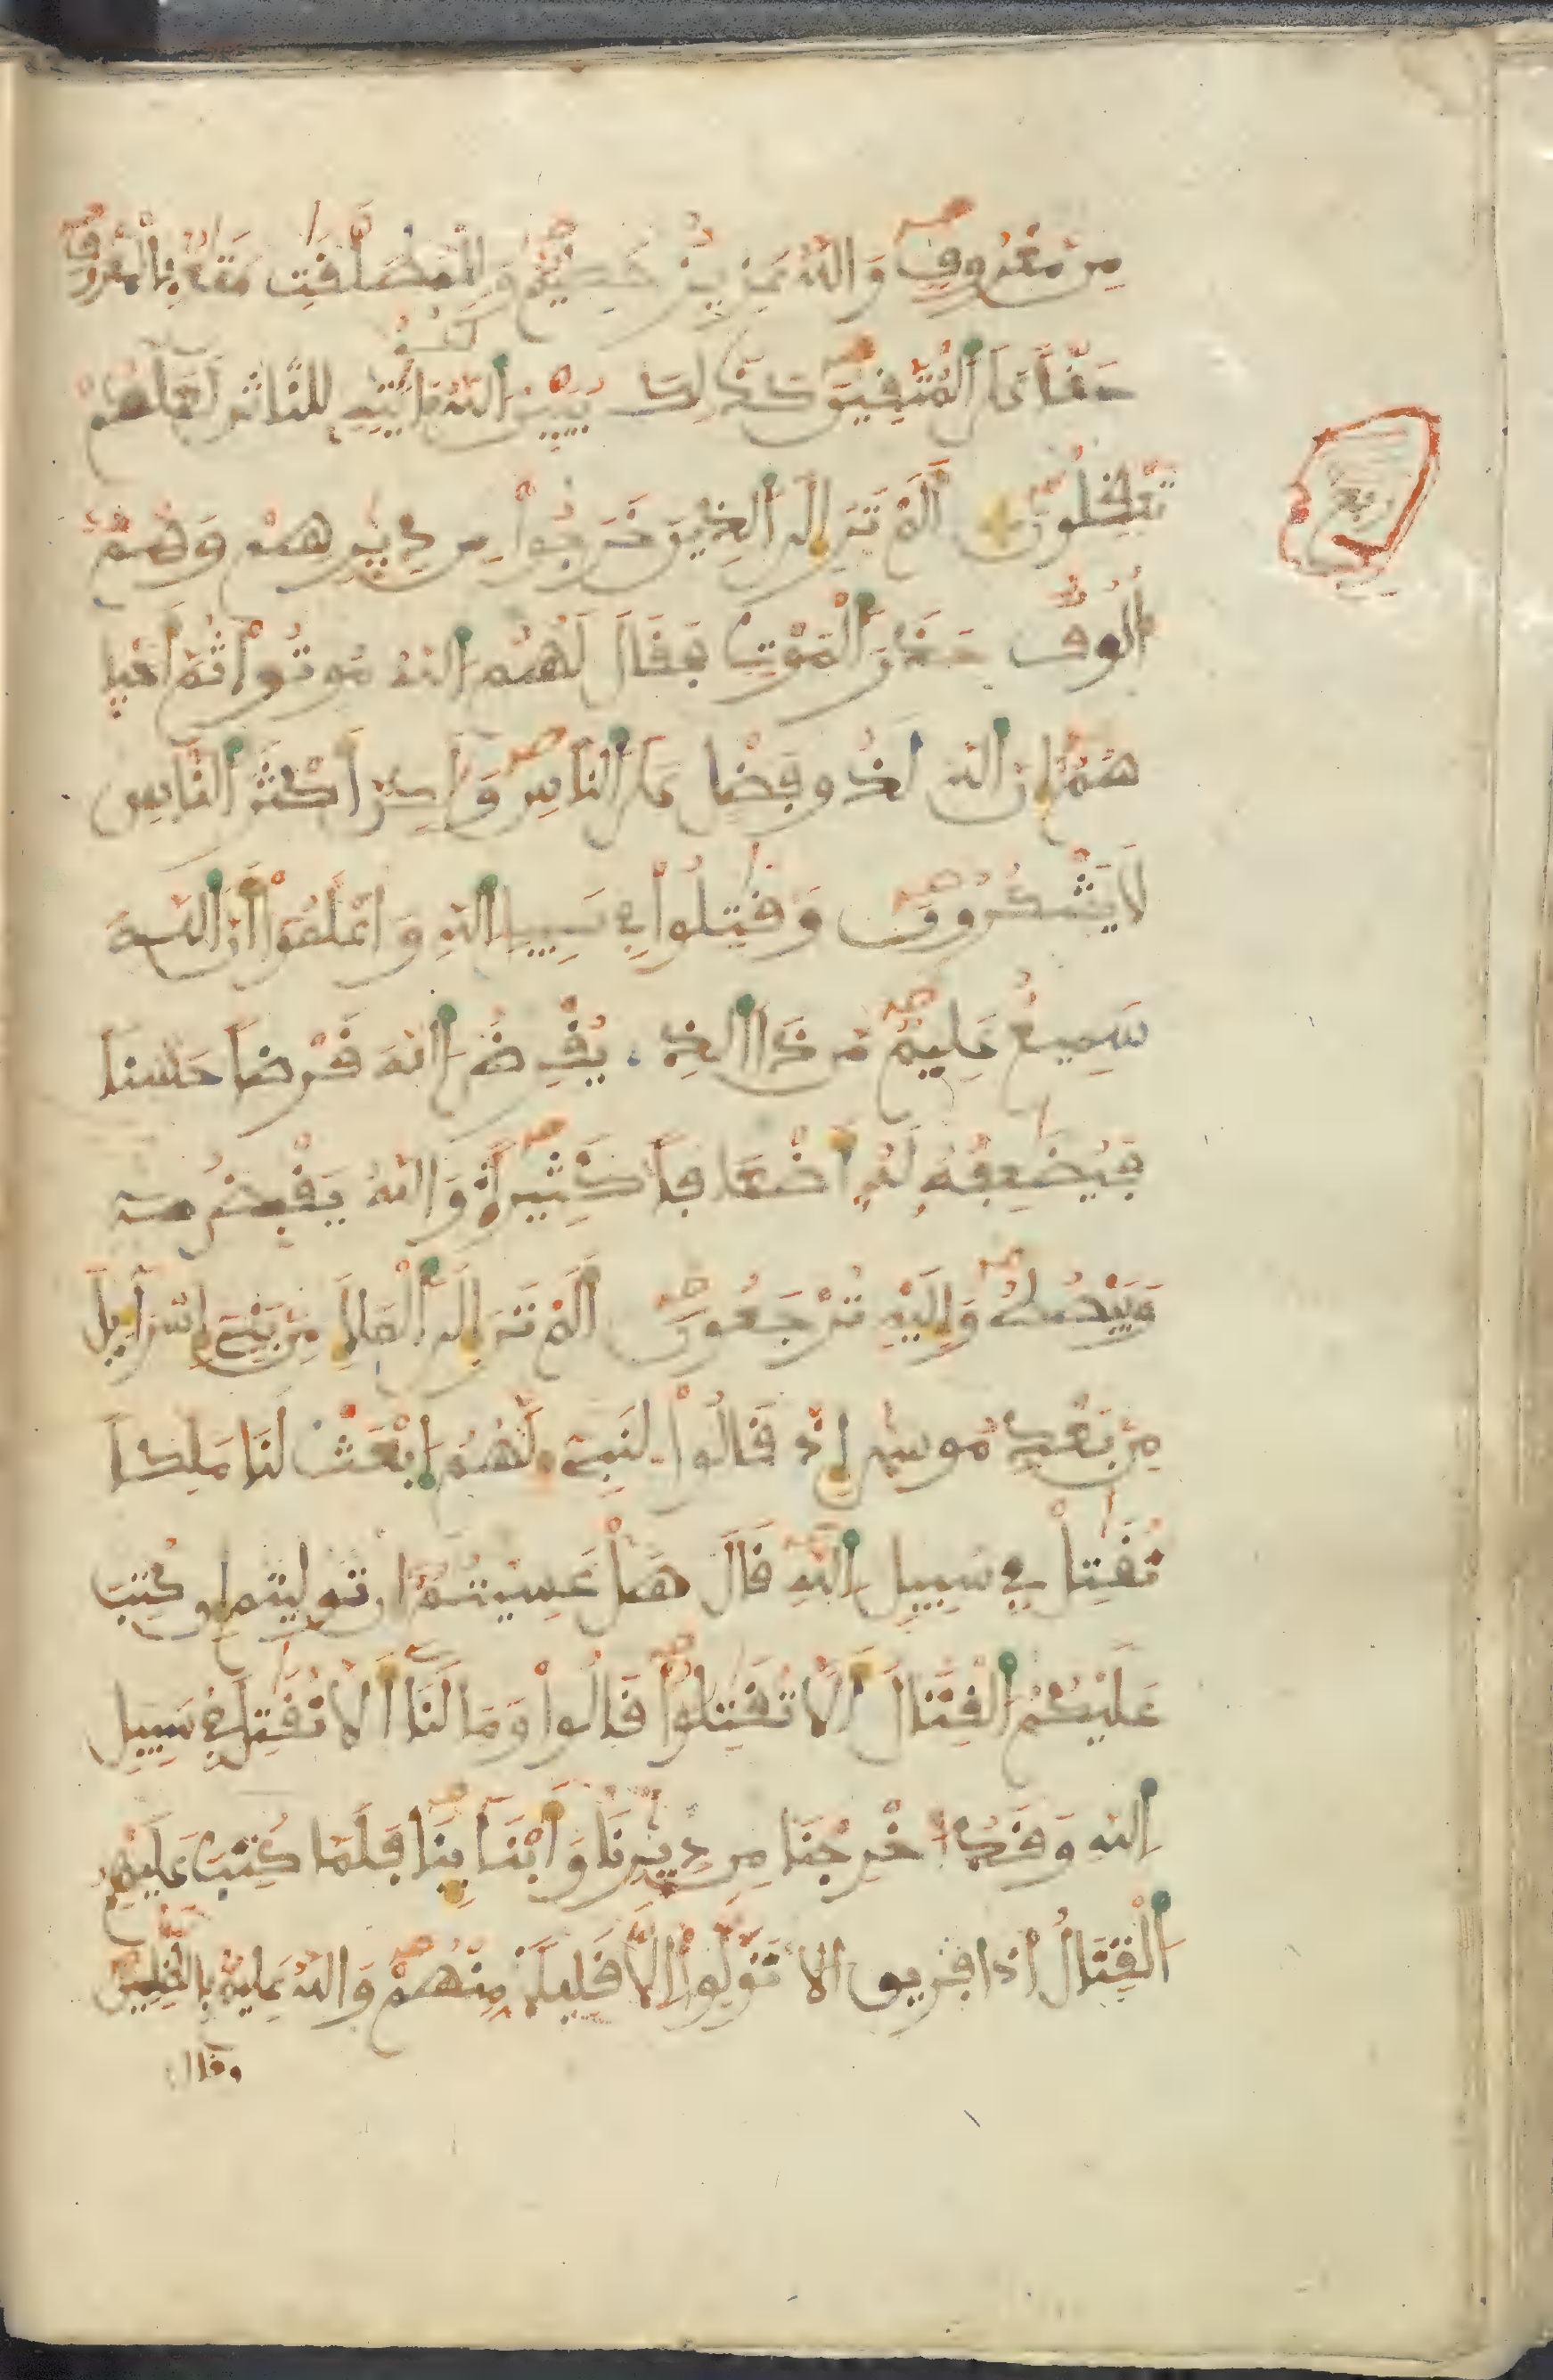 مِن مَّعْرُوفٍ وَاللَّهُ عَزِيزٌ حَكِيمٌ وَلِلْمُطَلَّقَٰتِ مَتَٰعٌ بِالْمَعْرُوفِ
حَقّاً عَلَى الْمُتَّقِينَ كَذَٰلِكَ يُبَيِّنُ اللَّهُ لَكُمْ ءَايَٰتِهِ لِلنَّاسِ لَعَلَّكُمْ
تَعْقِلُونَ أَلَمْ تَرَ إِلَى الذِينَ خَرَجُواْ مِن دِيَٰرِهِمْ وَهُمْ
أُلُوفٌ حَذَرَ الْمَوْتِ فَقَالَ لَهُمُ اللَّهُ مُوتُواْ ثُمَّ أَحْيَا
هُمُ إِنَّ اللَّهَ لَذُو فَضْلٍ عَلَى النَّاسِ وَلَٰكِنَّ أَكْثَرَ النَّاسِ
لَا يَشْكُرُونَ وَقَٰتِلُواْ فِي سَبِيلِ اللَّهِ وَاعْلَمُواْ أَنَّ اللَّهَ
سَمِيعٌ عَلِيمٌ مَّن ذَا الذِي يُقْرِضُ اللَّهَ قَرْضاً حَسَناً
فَيُضَٰعِفُهُ لَهُ أَضْعَافاً كَثِيرَةً وَاللَّهُ يَقْبِضُ
وَيَبْصُطُ وَإِلَيْهِ تُرْجَعُونَ أَلَمْ تَرَ إِلَى الْمَلَإِ مِن بَنِي إِسْرَآءِيلَ
مِن بَعْدِ مُوسَىٰ إِذْ قَالُواْ لِنَبِيءٍ لَّهُمُ ابْعَثْ لَنَا مَلِكاً
نُّقَٰتِلْ فِي سَبِيلِ اللَّهِ قَالَ هَلْ عَسِيتُمُ إِن كُتِبَ
عَلَيْكُمُ الْقِتَالُ أَلَّا تُقَٰتِلُواْ قَالُواْ وَمَا لَنَا أَلَّا نُقَٰتِلَ فِي سَبِيلِ
اللَّهِ وَقَدُ اخْرِجْنَا مِن دِيَٰرِنَا وَأَبْنَآئِنَا فَلَمَّا كُتِبَ عَلَيْهِمُ
الْقِتَالُ تَوَلَّوِاْ إِلَّا قَلِيلًا مِّنْهُمْ وَاللَّهُ عَلِيمٌ بِالظَّٰلِمِينَ
وقال